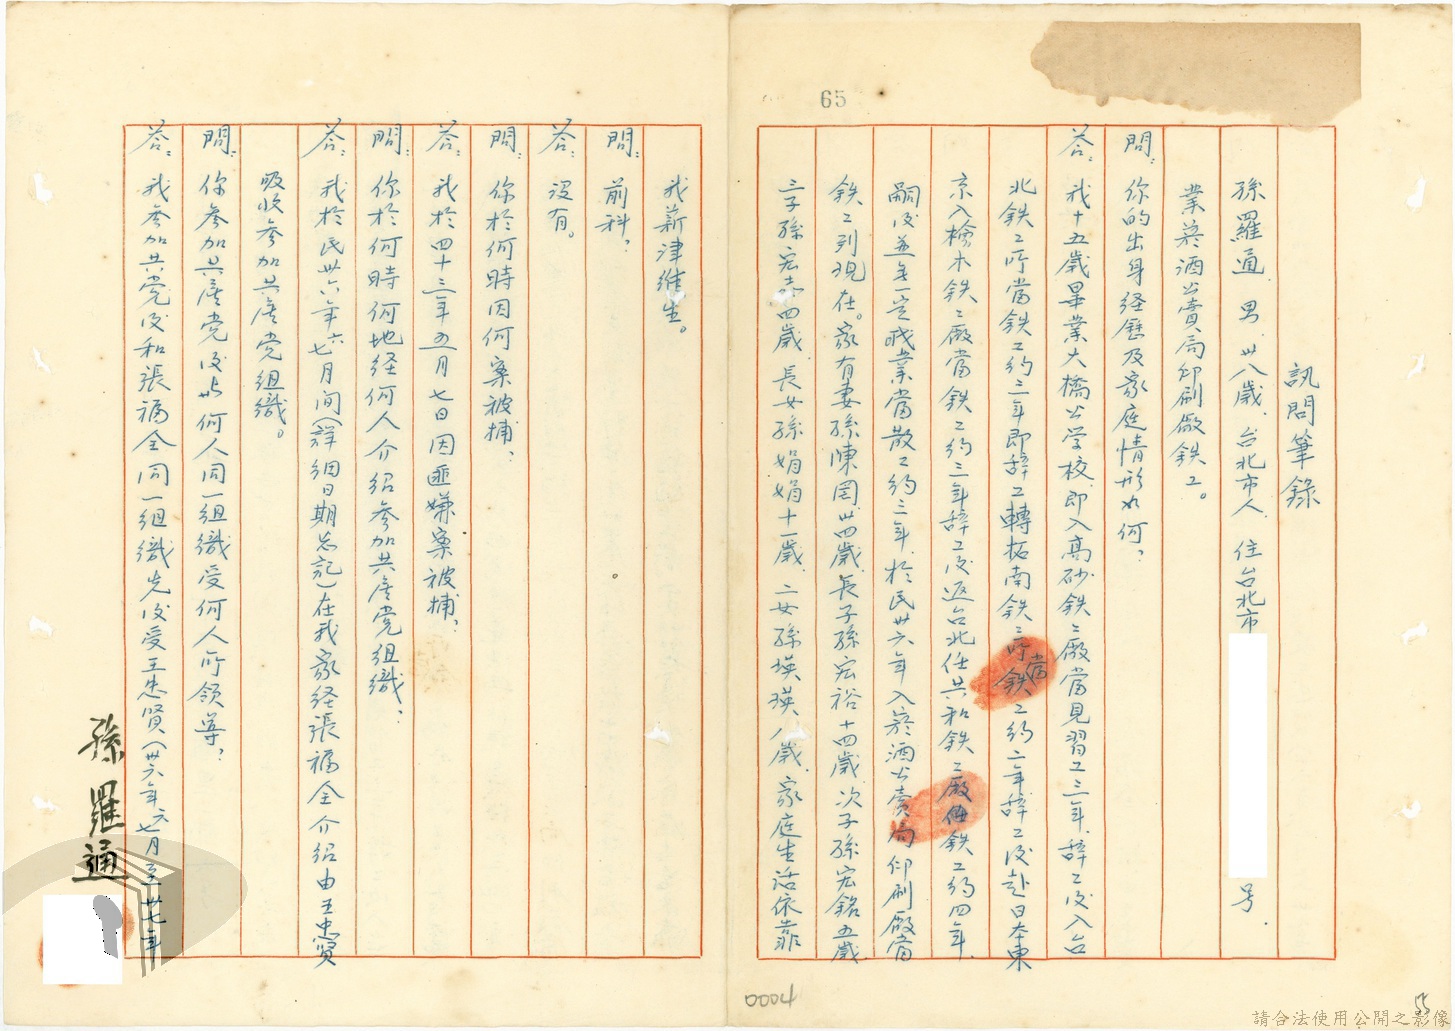 65
訊問筆錄
孫羅通 男 卅八歲. 台北市人. 住台北市 号.
業菸酒公賣局印刷廠鉄工。
問：你的出身經歷及家庭情形如何？
答：我十五歲畢業大橋公学校.即入高砂鉄工廠當見習工三年.辞工後入台
北鉄工所當鉄工約三年即辞工轉拓南鉄工所當鉄工約二年辞工後赴日本東
京入檜木鉄工廠當鉄工約三年辞工後返台北任共和鉄工廠鉄工約四年.
嗣後並無一定职業當散工約三年.於民卅六年入菸酒公賣局印刷廠當
鉄工到現在。家有妻孫陳罔.卅四歲.長子孫宏裕十四歲.次子孫宏銘五歲
三子孫宏 四歲.長女孫娟娟十一歲.二女孫瑛瑛八歲.家庭生活依靠
我薪津維生。
問：前科？
答：沒有。
問：你於何時因何案被捕？
答：我於四十三年五月七日因匪嫌案被捕？
問：你於何時何地經何人介紹參加共產党組織？
答：我於民卅六年六七月间(詳細日期忘記)在我家经張福全介紹由王忠賢
吸收參加共產党組織。
問：你參加共產党後与何人同一組織受何人所領導？
答：我參加共党後和張福全同一組織先後受王忠賢(卅六年六七月至卅七年
孫羅通
0004
請合法使用公開之影像